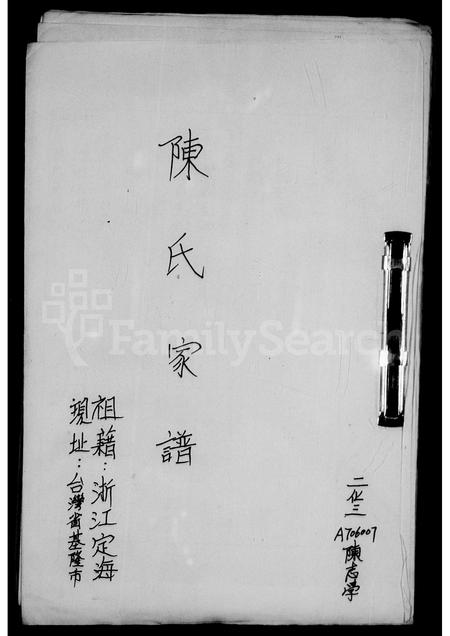 陳氏家譜
祖籍：浙江定海
現址：台灣省基隆市
二化三
A706007
陳志学
FamilySearch